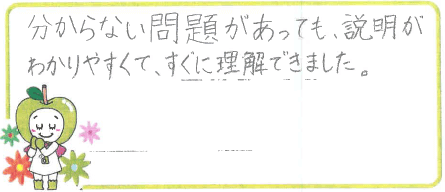 分からない問題があっても、説明が
わかりやすくて、すぐに理解できました。